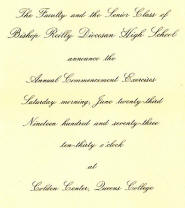 The Faculty and the Senior Class of
Bishop Reilly Diocesan High School
announce the
Annual Commencement Exercises
Saturday morning, June twenty-third
Nineteen hundred and seventy-three
ten-thirty o'clock
at
Colden Center, Queens College